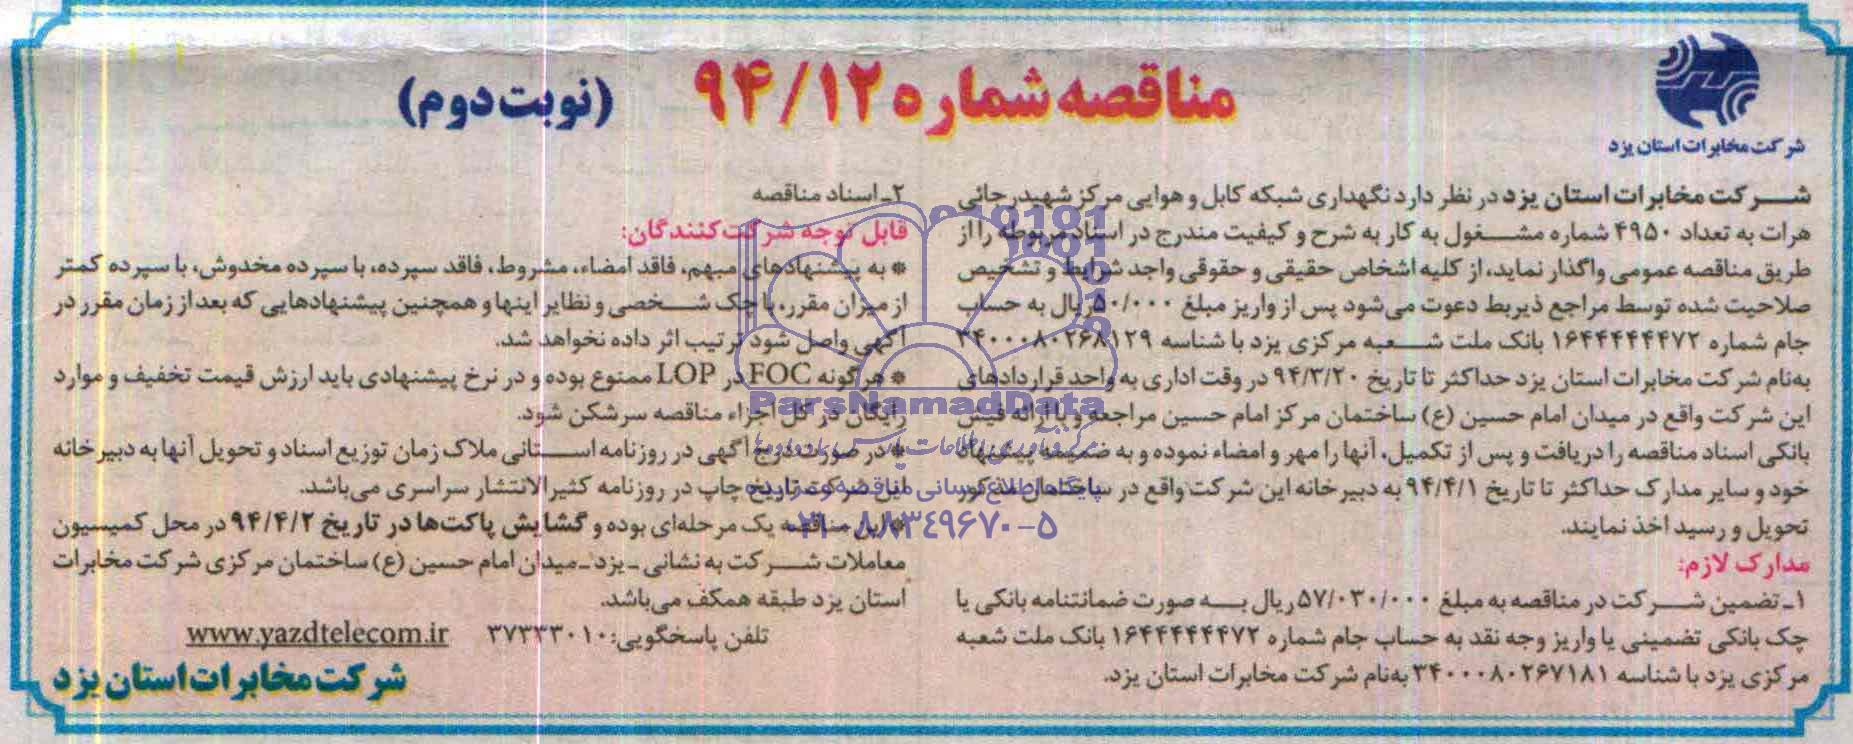 مناقصه شماره ۹۴/۱۲ (نوبت دوم)
شرکت مخابرات استان یزد
شرکت مخابرات استان یزد در نظر دارد نگهداری شبکه کابل و هوایی مرکز شهید رجائی
هرات به تعداد ۴۹۵۰ شماره مشغول به کار به شرح و کیفیت مندرج در اسناد مربوطه را از
طریق مناقصه عمومی واگذار نماید، از کلیه اشخاص حقیقی و حقوقی واجد شرایط و تشخیص
صلاحیت شده توسط مراجع ذیربط دعوت می‌شود پس از واریز مبلغ ۵۰/۰۰۰ریال به حساب
جام شماره ۱۶۴۴۴۴۴۴۷۲ بانک ملت شعبه مرکزی یزد با شناسه ۳۴۰۰۰۸۰۲۶۸۱۲۹
به‌نام شرکت مخابرات استان یزد حداکثر تا تاریخ ۹۴/۳/۲۰ در وقت اداری به واحد قراردادهای
این شرکت واقع در میدان امام حسین (ع) ساختمان مرکز امام حسین مراجعه و با ارائه فیش
بانکی اسناد مناقصه را دریافت و پس از تکمیل، آنها را مهر و امضاء نموده و به ضمیمه پیشنهاد
خود و سایر مدارک حداکثر تا تاریخ ۹۴/۴/۱ به دبیرخانه این شرکت واقع در ساختمان مذکور
تحویل و رسید اخذ نمایند.
مدارک لازم:
۱ـ تضمین شرکت در مناقصه به مبلغ ۵۷/۰۳۰/۰۰۰ ریال به صورت ضمانتنامه بانکی یا
چک بانکی تضمینی یا واریز وجه نقد به حساب جام شماره ۱۶۴۴۴۴۴۴۷۲ بانک ملت شعبه
مرکزی یزد با شناسه ۳۴۰۰۰۸۰۲۶۷۱۸۱ به‌نام شرکت مخابرات استان یزد.
۲ـ اسناد مناقصه
قابل توجه شرکت‌کنندگان:
* به پیشنهادهای مبهم، فاقد امضاء، مشروط، فاقد سپرده، با سپرده مخدوش، با سپرده کمتر
از میزان مقرر، با چک شخصی و نظایر اینها و همچنین پیشنهادهایی که بعد از زمان مقرر در
آگهی واصل شود ترتیب اثر داده نخواهد شد.
* هرگونه FOC در LOP ممنوع بوده و در نرخ پیشنهادی باید ارزش قیمت تخفیف و موارد
رایگان در کل اجزاء مناقصه سرشکن شود.
* در صورت درج آگهی در روزنامه استانی ملاک زمان توزیع اسناد و تحویل آنها به دبیرخانه
این شرکت تاریخ چاپ در روزنامه کثیرالانتشار سراسری می‌باشد.
* این مناقصه یک مرحله‌ای بوده و گشایش پاکت‌ها در تاریخ ۹۴/۴/۲ در محل کمیسیون
معاملات شرکت به نشانی ـ یزد ـ میدان امام حسین (ع) ساختمان مرکزی شرکت مخابرات
استان یزد طبقه همکف می‌باشد.
تلفن پاسخگویی: ۳۷۲۳۳۰۱۰ www.yazdtelecom.ir
شرکت مخابرات استان یزد
ParsNamadData
پایگاه اطلاع رسانی مناقصه و مزایده
۰۲۱-۸۸۳۴۹۶۷۰-۵